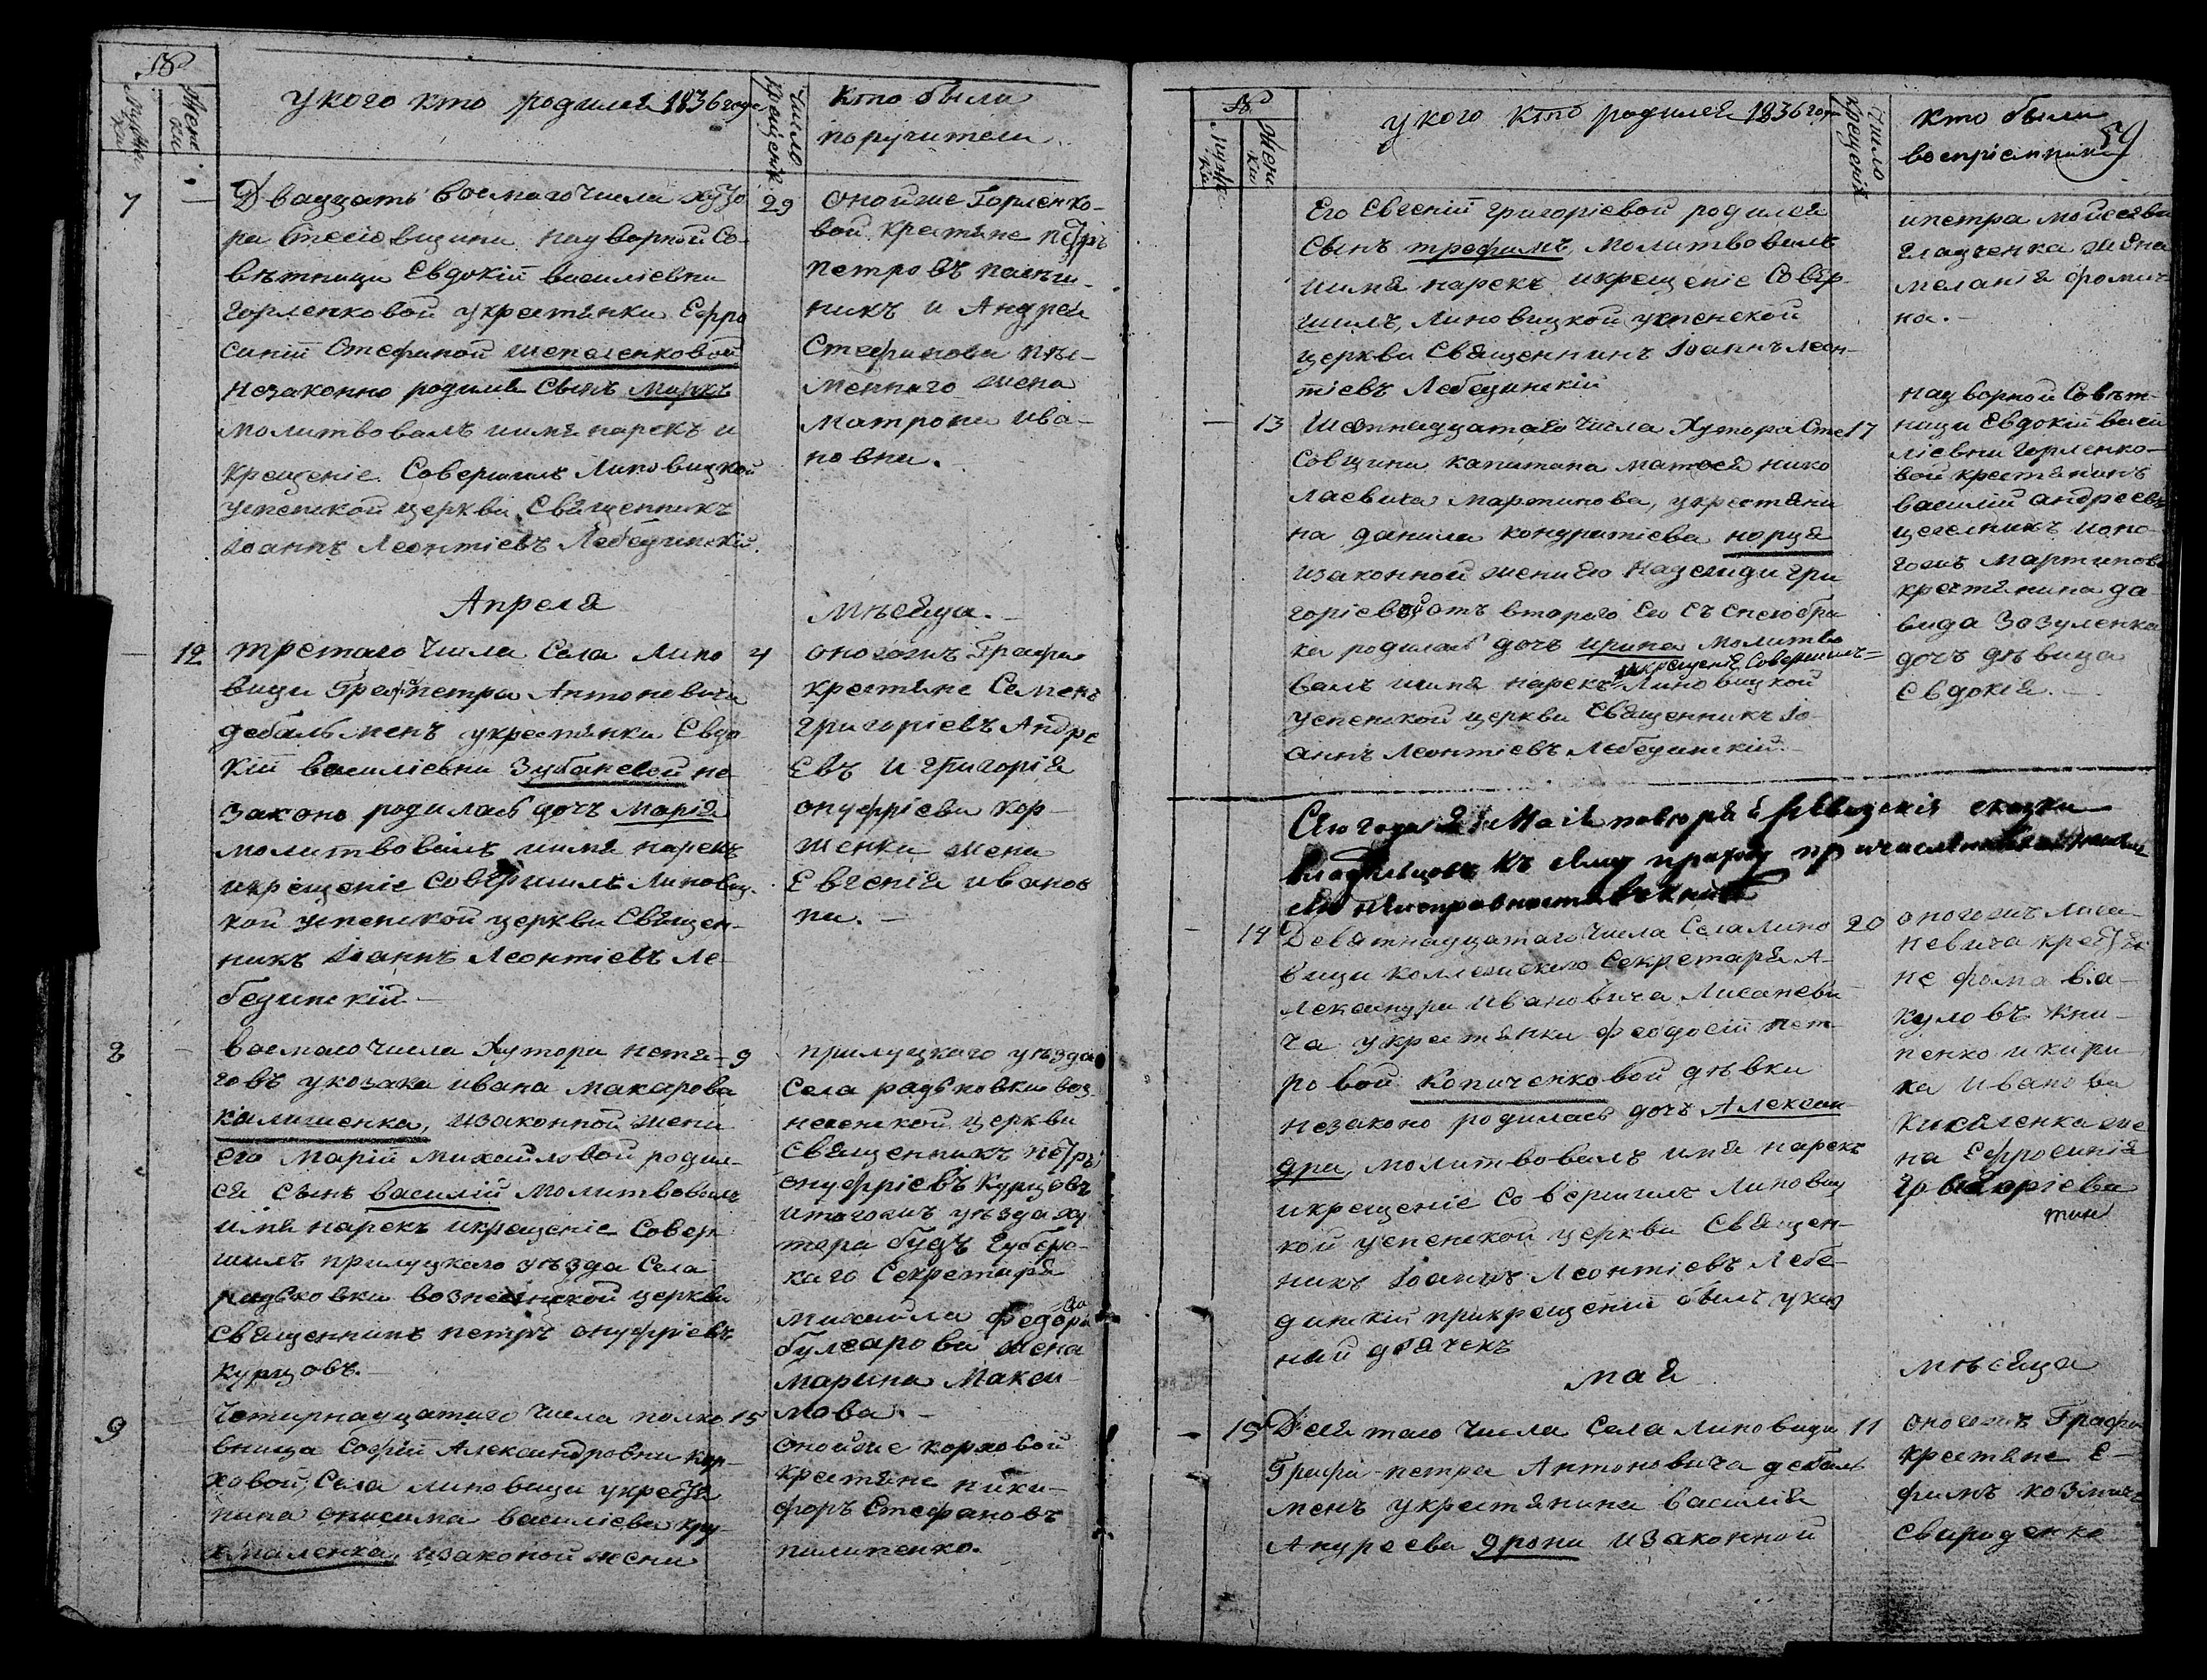 №
Мужеска
Женски
У кого кто родился 1836 года
Число крещенія
Кто были
поручители
7
Двадцать восмаго числа хуто
ра Стесіовщини надворной Со-
вѣтници Евдокіи василіевни
Горленковой у крестянки Ефро
синіи Стефиной шепеленковой
незаконно родился сынъ Маркъ
молитвовалъ имя нарекъ и
крещеніе совершилъ Липовицкой
успенской церкви Священникъ
Іоаннъ Леонтіевъ Лебединскій.
29
онойже Горленко-
вой крестяне петръ
петровъ
никъ и Андрея
Стефанова
жена
матрона ива-
новна.
Апреля
мѣсяца.
12
третаго числа Села Липо
вици Графа петра Антоновича
дебальменъ у крестянки Евдо
кіи василіевни Зубаневой не
законо родилась дочъ Марія
молитвовалъ имя нарекъ
и крещеніе совершилъ Липовиц-
кой успенской церкви Священ-
никъ Іоаннъ Леонтіевъ Ле-
бединскій.
4
оногожъ Графа
крестяне Семенъ
григоріевъ Андре
евъ и григорія
онуфріева кор-
женка жена
Евгенія иванов
на.
8
восмаго числа Хутора нетя-
говъ у козака ивана макарова
калишенка, и законной жени
его Маріи михайловой родил-
ся сынъ василій молитвовалъ
имя нарекъ и крещеніе совер
шилъ прилуцкаго уѣзда Села
радковки вознесенской церкви
Священникъ петръ онуфріевъ
курцовъ.
9
прилуцкаго уѣзда
Села радковки воз-
несенской церкви
Священникъ петръ
онуфріевъ курцовъ
и тогожъ уѣзда ху
тора будъ Губерс-
каго Секретаря
михаила федорова
булгарова жена
марина Макси
мова.
9
Четирнадцатаго числа полко
вница Софіи Александровни кор-
ховой, Села липовици у крестя
нина онисима василіева кру
хмаленка, и законой жени
15
онойже корховой
крестяне ники-
форъ Стефановъ
пилипенко.
№
Мужеска
Женски
У кого кто родился 1836 года
Число крещенія
кто были
воспріемники
59
Его Евгеніи григоріевой родился
сынъ трофимъ, молитвовалъ
имя нарекъ и крещеніе совер-
шилъ, Липовицкой успенской
церкви Священникъ Іоаннъ леон-
тіевъ Лебединскій
и петра мойсеева
гладченка жена
меланія фомич
на.
13
Шестнадцатаго числа Хутора Сте
совщини капитана матвея нико
лаевича мартинова, у крестяни
на данила кондратіева норця
и законной жени его Надежди гри
горіевой отъ второго его съ енею бра
ка родилась дочъ ирина молитво
валъ имя нарекъ и крещеніе совершилъ Липовицкой
успенской церкви Священникъ Іо-
аннъ леонтіевъ Лебединскій.
17
надворной Совѣт-
ници Евдокіи васи
ліевни Горленко-
вой крестянинъ
василій андреевъ
цегелникъ и оно-
гожъ Мартинова
крестянина да
вида Зозуленка
дочъ дѣвица
Евдокія.
Сего года Маія
къ сему приходу
14
Девятнадцатаго числа Села липо
вици коллежскаго Секретаря А-
лександра ивановича Лисаневи
ча у крестянки феодосіи пет-
ровой копиченковой дѣвки
незаконо родилась дочъ Алексан
дра, молитвовалъ имя нарекъ
и крещеніе совершилъ Липовиц
кой успенской церкви Священ-
никъ Іоаннъ Леонтіевъ Лебе-
динскій при крещеніи былъ указ
ний дячекъ
20
оногожъ лиса-
невича крестя
не фома ва-
куловъ кни-
пенко и кири
ка иванова
киселенка же
на Ефросинія
Григоріева
мая
мѣсяца
15
Десятаго числа Села липовици
Графа петра Антоновича дебаль
менъ у крестянина василія
Андреева дрони и законной
11
оногожъ Графа
крестяне Е-
фимъ козмичъ
свироденко